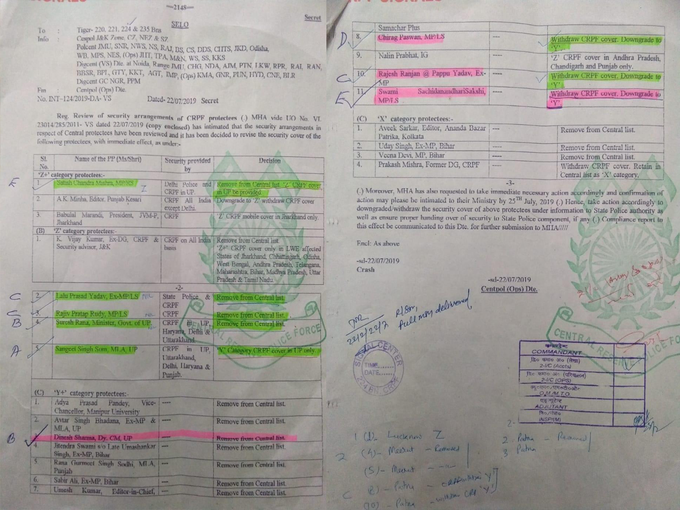 ---2148---
Secret
To : Tiger- 220, 221, 224 & 235 Bns
SELO
Info : Cenpol J&K Zone, CZ, NEZ & SZ
Polcent JMU, SNR, NWS, NS, RAJ, DS, CS, DDS, CHTS, JKD, Odisha,
WB, MPS, NES,
Digcent (VS) Dte. at Noida, Range
BRSR, BPT, GTY, KKT, AGT, IMP, (Ops) KMA, GNR, PUN, HYD, CNF, BLR
Digcent GC NGR, PPM
Fm : Centpol (Ops) Dte.
No. INT-124/2019-DA- VS Dated- 22/07/2019 Secret
Reg. Review of security arrangements of CRPF protectees (.) MHA vide UO No. VI.
23014/285/2011- VS dated 22/07/2019 (copy enclosed) has intimated that the security arrangements in
respect of Central Protectees have been reviewed and it has been decided to revise the security cover of the
following protectees, with immediate effect, as under:-
Sl. No. Name of the PP (Ms/Shri) Security provided by Decision
'Z+' category protectees:-
1. Satish Chandra Mishra, MP/RS Delhi Police and CRPF in UP. Remove from Central list. 'Z' CRPF cover in UP be provided
2. A.K. Minha, Editor, Punjab Kesari CRPF All India except Delhi. Downgrade to 'Z' withdraw CRPF cover
3. Babulal Marandi, President, JVM-P, Jharkhand CRPF 'Z' CRPF mobile cover in Jharkhand only.
(B) 'Z' category protectees:-
1. K. Vijay Kumar, Ex-DG, CRPF & Security advisor, J&K CRPF on All India basis Remove from Central list
'Z+' CRPF cover only in LWE affected States of Jharkhand, Chhattisgarh, Odisha, West Bengal, Andhra Pradesh, Telangana, Maharashtra, Bihar, Madhya Pradesh, Uttar Pradesh & Tamil Nadu
-2-
2. Lalu Prasad Yadav, Ex-MP/LS State Police & CRPF Remove from Central list.
3. Rajiv Pratap Rudy, MP/LS CRPF Remove from Central list.
4. Suresh Rana, Minister, Govt. of UP CRPF in UP, Haryana, Delhi & Uttarakhand Remove from Central list.
5. Sangeet Singh Som, MLA, UP CRPF in UP, Uttarakhand, Delhi, Haryana & Punjab 'Y' Category CRPF cover in UP only.
(C) 'Y+' category protectees:-
1. Adya Prasad Pandey, Vice-Chancellor, Manipur University --- Remove from Central list.
2. Avtar Singh Bhadana, Ex-MP & MLA, UP --- Remove from Central list.
3. Dinesh Sharma, Dy. CM, UP --- Remove from Central list.
4. Jitendra Swami s/o Late Umashankar Singh, Ex-MP, Bihar --- Remove from Central list.
5. Rana Gurmeet Singh Sodhi, MLA, Punjab --- Remove from Central list.
6. Sabir Ali, Ex-MP, Bihar --- Remove from Central list.
7. Umesh Kumar, Editor-in-Chief, --- Remove from Central list.
Samachar Plus
8. Chirag Paswan, MP/LS --- Withdraw CRPF cover. Downgrade to 'Y'.
9. Nalin Prabhat, IG --- 'Z' CRPF cover in Andhra Pradesh, Chandigarh and Punjab only.
10. Rajesh Ranjan @ Pappu Yadav, Ex-MP --- Withdraw CRPF cover. Downgrade to 'Y'.
11. Swami SachidanandhariSakshi, MP/LS --- Withdraw CRPF cover. Downgrade to 'Y'.
(C) 'X' category protectees:-
1. Aveek Sarkar, Editor, Ananda Bazar Patrika, Kolkata --- Remove from Central list.
2. Uday Singh, Ex-MP, Bihar --- Remove from Central list.
3. Veena Devi, MP, Bihar --- Remove from Central list.
4. Prakash Mishra, Former DG, CRPF --- Withdraw CRPF cover. Retain in Central list as 'X' category.
-3-
(.) Moreover, MHA has also requested to take immediate necessary action accordingly and confirmation of
action may please be intimated to their Ministry by 25th July, 2019 (.) Hence, take action accordingly to
downgraded/withdraw the security cover of above protectees under information to State Police authority as
well as ensure proper handing over of security to State Police component, if any (.) Compliance report in
this effect be communicated to this Dte. for further submission to MHA/////
Encl: As above
-sd-22/07/2019
Crash
-sd-22/07/2019
Centpol (Ops) Dte.
CENTRAL RESERVE POLICE FORCE
SIGNAL CENTER
TIME
DATE
COMMANDANT
2-I/C (OPS)
ADJUTANT